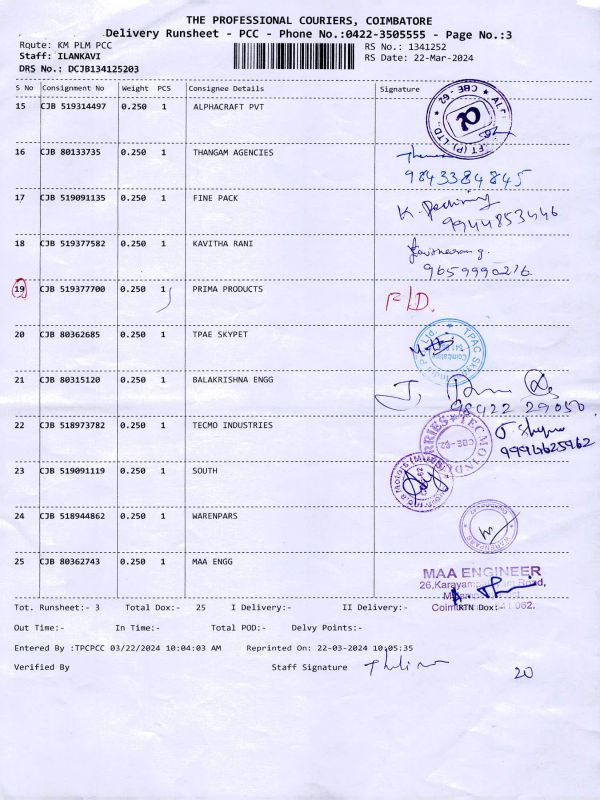 THE PROFESSIONAL COURIERS, COIMBATORE
Delivery Runsheet - PCC - Phone No.:0422-3505555 - Page No.:3
Route: KM PLM PCC RS No.: 1341252
Staff: ILANKAVI RS Date: 22-Mar-2024
DRS No.: DCJB134125203
S No Consignment No Weight PCS Consignee Details Signature
15 CJB 519314497 0.250 1 ALPHACRAFT PVT
CBE - 62
16 CJB 80133735 0.250 1 THANGAM AGENCIES
9843384845
17 CJB 519091135 0.250 1 FINE PACK
9944853446
18 CJB 519377582 0.250 1 KAVITHA RANI
9659990216
19 CJB 519377700 0.250 1 PRIMA PRODUCTS
20 CJB 80362685 0.250 1 TPAE SKYPET
21 CJB 80315120 0.250 1 BALAKRISHNA ENGG
98422 29050
22 CJB 518973782 0.250 1 TECMO INDUSTRIES
CBE-62
9994625962
23 CJB 519091119 0.250 1 SOUTH
24 CJB 518944862 0.250 1 WARENPARS
WARENPARS
25 CJB 80362743 0.250 1 MAA ENGG
MAA ENGINEER
Tot. Runsheet:- 3 Total Dox:- 25 I Delivery:- II Delivery:- RTN Dox:-
Out Time:- In Time:- Total POD:- Delvy Points:-
Entered By :TPCPCC 03/22/2024 10:04:03 AM Reprinted On: 22-03-2024 10:05:35
Verified By Staff Signature
20